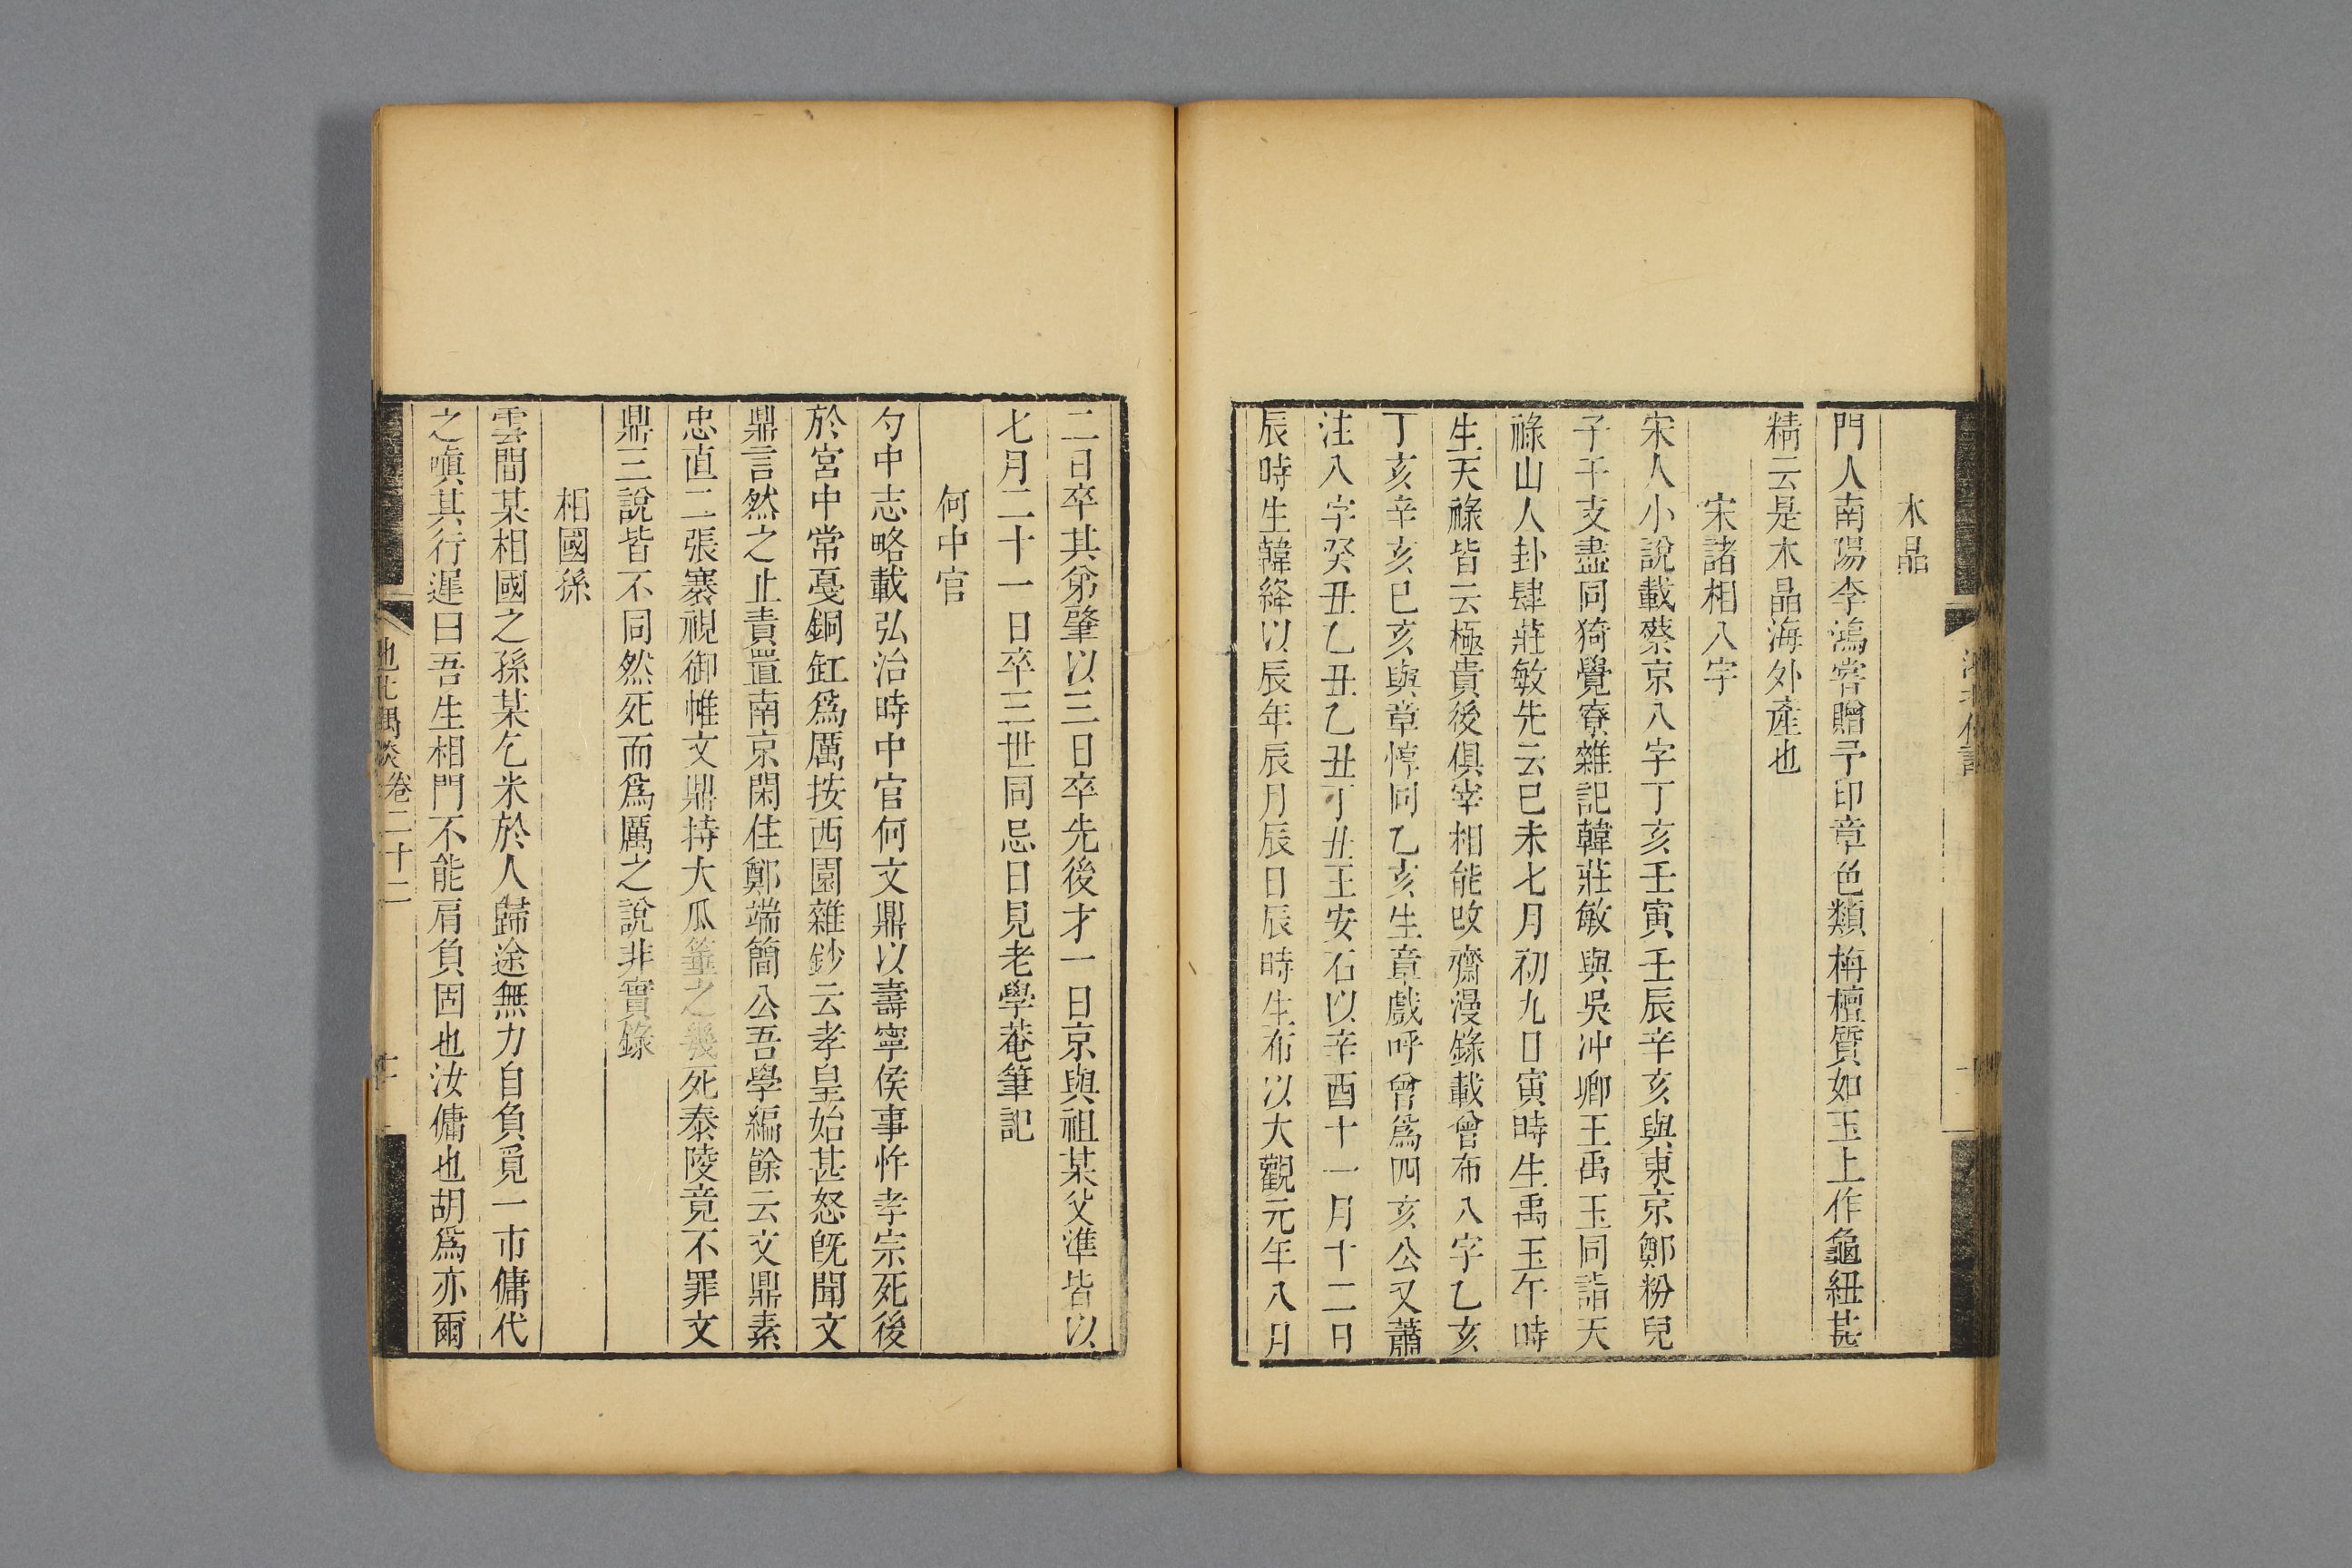 木晶
門人南陽李鴻嘗贈予印章色類栴檀質如玉上作龜紐甚
精云是木晶海外產也
宋諸相八字
宋人小說載蔡京八字丁亥壬寅壬辰辛亥與東京鄭粉兒
子干支盡同猗覺寮雜記韓莊敏與吳沖卿王禹玉同詣天
祿山人卦肆莊敏先云巳未七月初九日寅時生禹玉午時
生天祿皆云極貴後俱宰相能改齋漫錄載曾布八字乙亥
丁亥辛亥巳亥與章惇同乙亥生章戲呼曾爲四亥公又蕭
注八字癸丑乙丑乙丑丁丑王安石以辛酉十一月十二日
辰時生韓絳以辰年辰月辰日辰時生布以大觀元年八月
二日卒其弟肇以三日卒先後才一日京與祖某父準皆以
七月二十一日卒三世同忌日見老學菴筆記
何中官
勺中志略載弘治時中官何文鼎以壽寧侯事忤孝宗死後
於宮中常戞銅缸爲厲按西園雜鈔云孝皇始甚怒旣聞文
鼎言然之止責置南京閑住鄭端簡公吾學編餘云文鼎素
忠直二張褰視御帷文鼎持大瓜箠之幾死泰陵竟不罪文
鼎三說皆不同然死而爲厲之說非實錄
相國孫
雲間某相國之孫某乞米於人歸途無力自負覓一市傭代
之嗔其行遲曰吾生相門不能肩負固也汝傭也胡爲亦爾
池北偶談 卷二十二